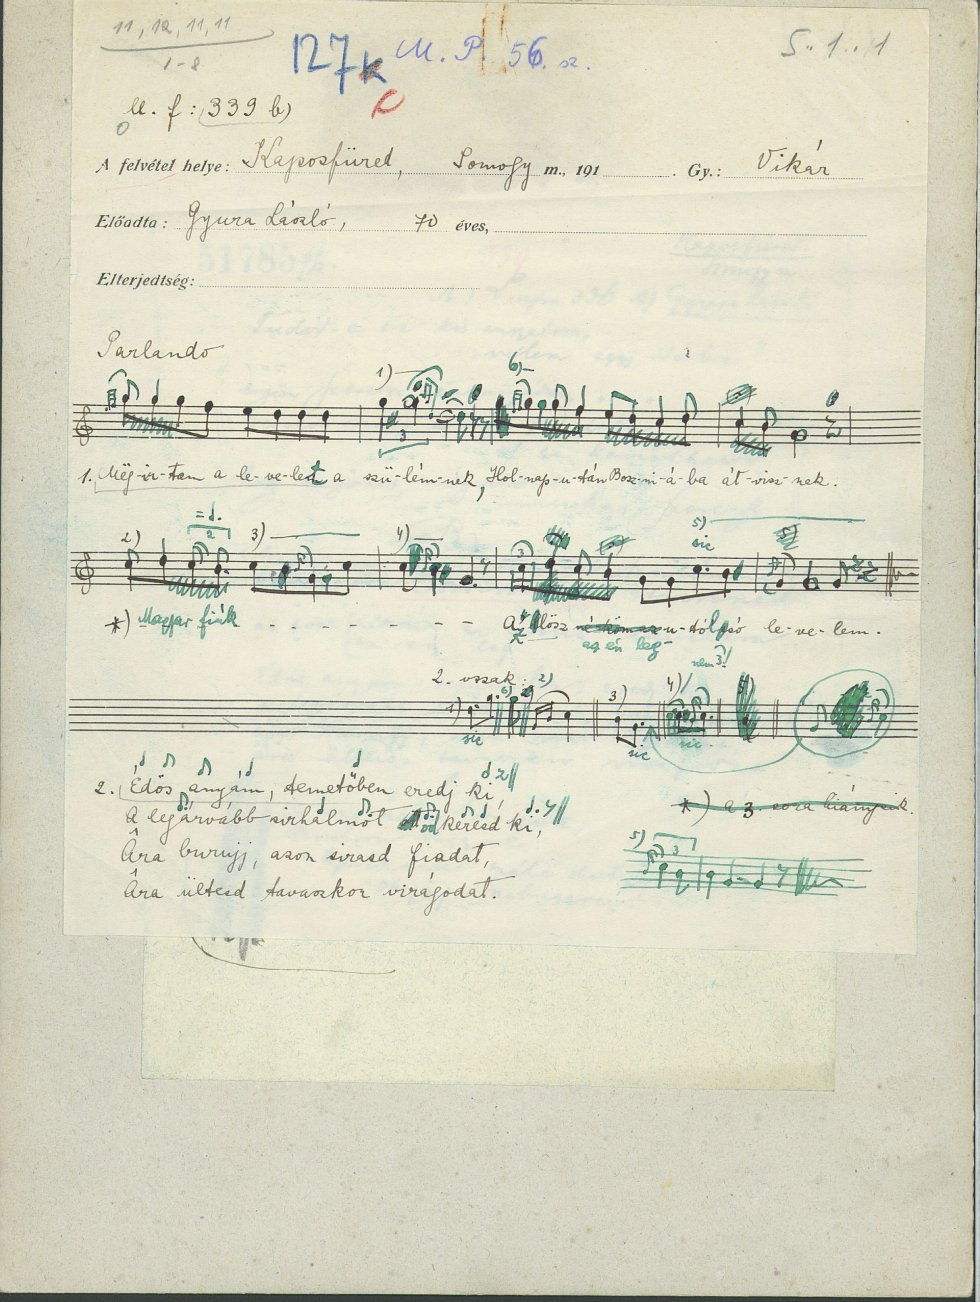 11, 12, 11, 11
1-8
127
M. P. 56. sz.
5. 1. 1
M. f: 339 b)
A felvétel helye: Kaposfüred, Somogy m., 191 . Gy.: Vikár
Előadta: Gyura László, 70 éves,
Elterjedtség:
Parlando
1) 6)
3
1. Mëg-ir-tam a le-ve-lest a szü-lém-nek, Hol-nap-u-tán Bosz-ni-á-ba át-visz-nek.
2) 3) 4) 5) sic
*) Magyar fiúk - - - - - - Az u-tólsó le-ve-lem.
az én leg-
nem 3!
2. vssak:
1) sic 2) 3) sic 4) sic
2. Édös anyám, temetőben eredj ki,
A legárvább sirhalmot kerésd ki,
Âra borujj, azon sirasd fiadat,
Âra ültesd tavaszkor virágodat.
*) a 3. sora hiányzik.
5) 3